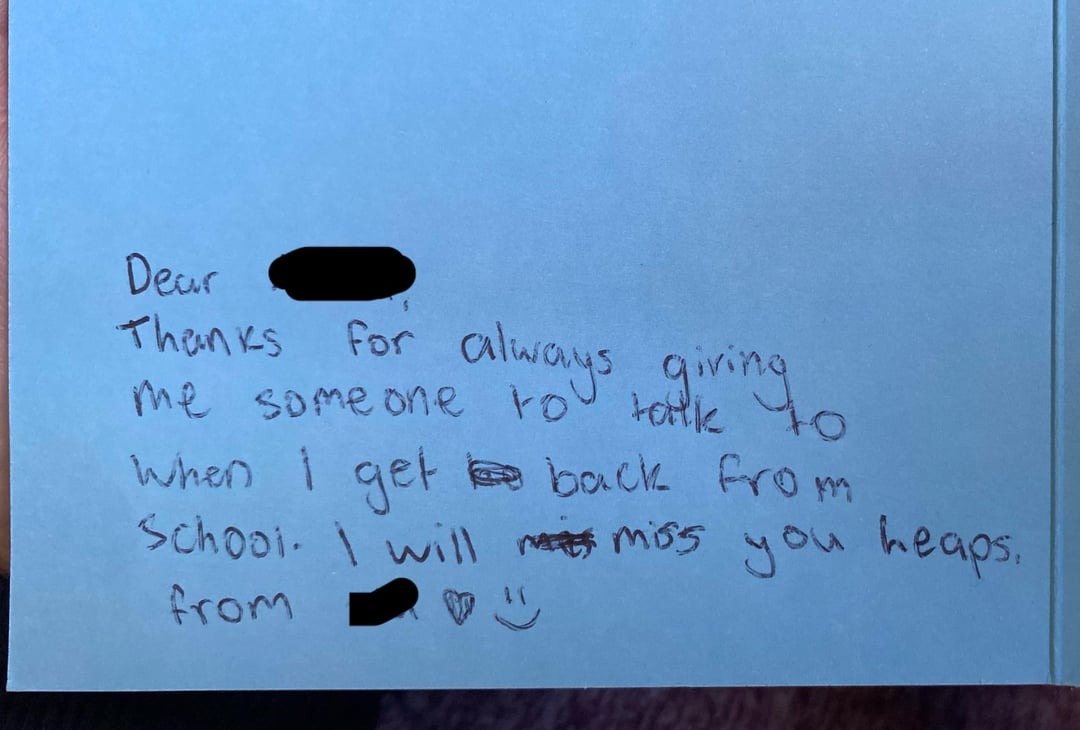 Dear
Thanks for always giving
me someone to talk to
when I get back from
school. I will miss you heaps.
from